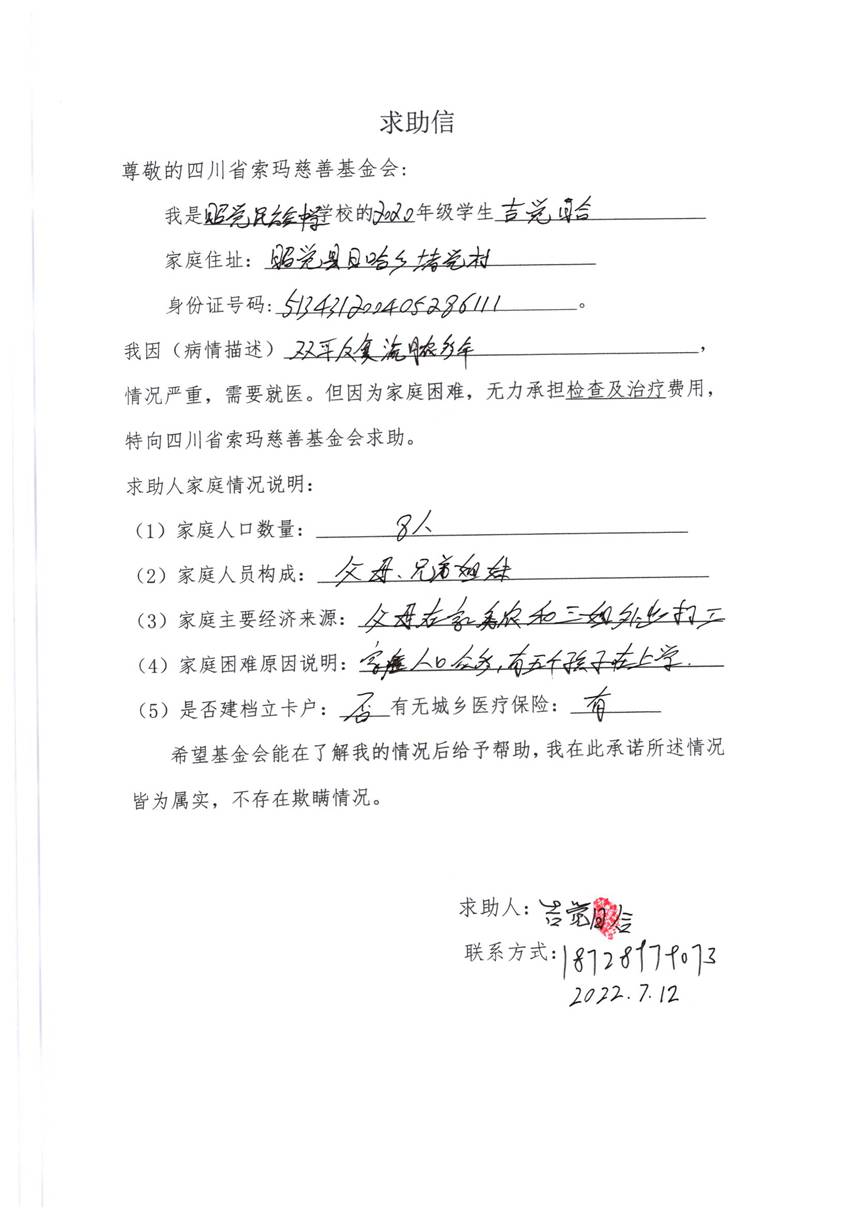 求助信
尊敬的四川省索玛慈善基金会:
我是昭觉民族中学学校的2020年级学生吉觉日合
家庭住址: 昭觉县日哈乡堵觉村
身份证号码: 513431200405286111。
我因（病情描述）双耳反复流脓多年，
情况严重，需要就医。但因为家庭困难，无力承担检查及治疗费用，
特向四川省索玛慈善基金会求助。
求助人家庭情况说明:
（1）家庭人口数量: 8人
（2）家庭人员构成: 父母、兄弟姐妹
（3）家庭主要经济来源: 父母在家务农和三姐外出打工
（4）家庭困难原因说明: 家庭人口众多，有五个孩子在上学.
（5）是否建档立卡户: 否 有无城乡医疗保险: 有
希望基金会能在了解我的情况后给予帮助，我在此承诺所述情况
皆为属实，不存在欺瞒情况。
求助人: 吉觉日合
联系方式: 18728979073
2022.7.12